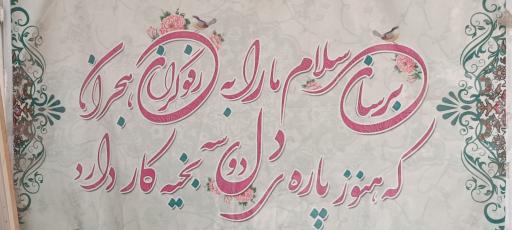 برسان سلام ما را به رفوگران هجران
که هنوز پاره‌ی دل دو سه بخیه کار دارد